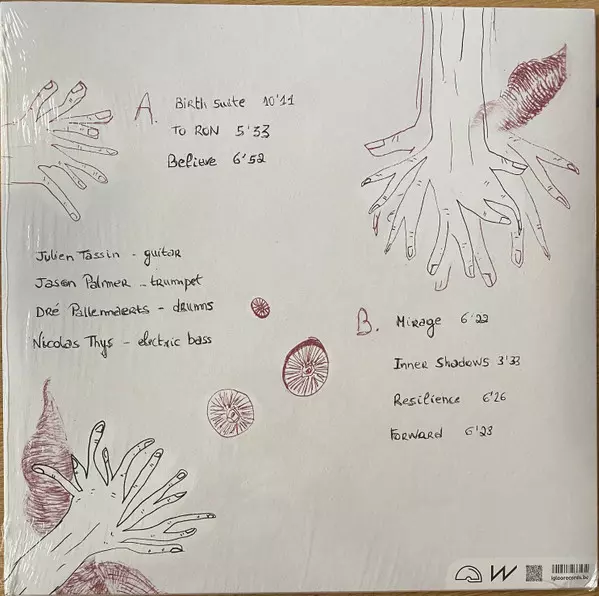 A.
Birth suite 10'11
To RON 5'33
Believe 6'52
Julien Tassin - guitar
Jason Palmer - trumpet
Dré Pallemaerts - drums
Nicolas Thys - electric bass
B.
Mirage 6'22
Inner Shadows 3'33
Resilience 6'26
Forward 6'23
igloorecords.be